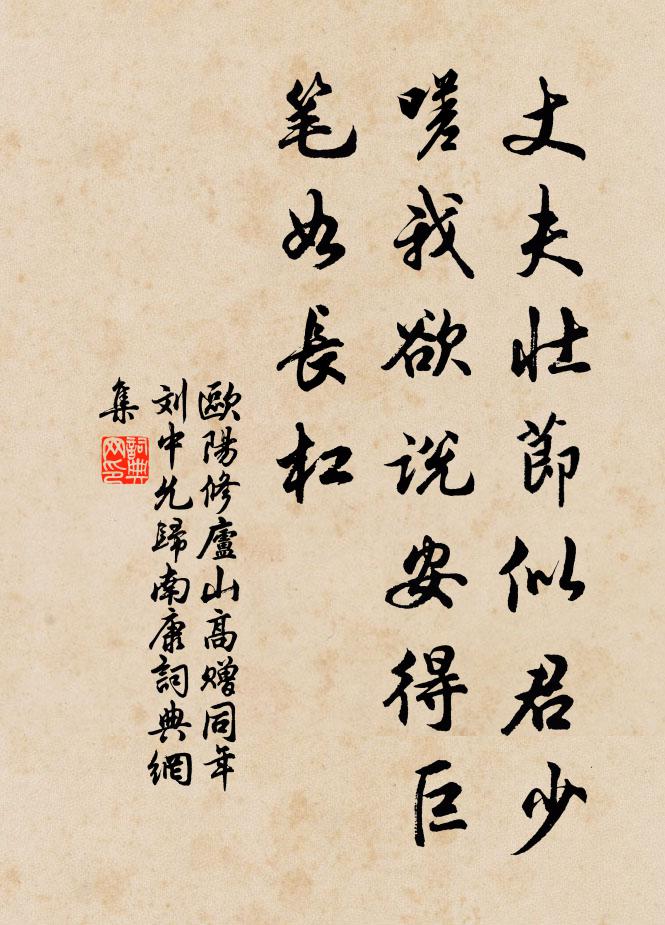 丈夫壮節似君少
嗟我欲説安得巨
笔如長杠
歐陽修廬山高贈同年
刘中允歸南康詞典網
集
詞典
网印